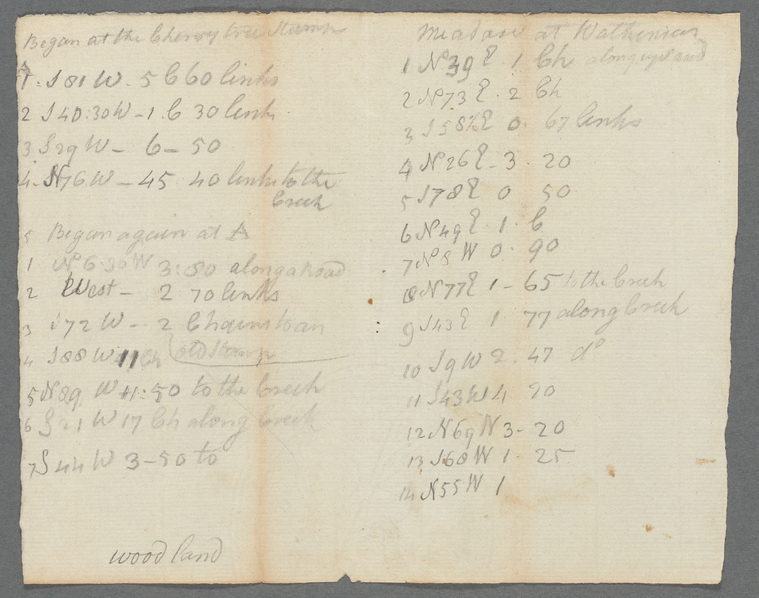 Began at the Cherry tree Stump
A
1. S 81 W. 5 C 60 links
2 S 40:30 W - 1. C 30 link
3 S 29 W - 6 - 50
4 - N 76 W - 45 40 links to the
Creek
5 Began again at A
1 N 6:30 W 3:50 along a Road
2 West - 2 70 links
3 S 72 W - 2 Chains to an
old Stump
4 S 88 W 11 Ch
5 N 89 W 11:50 to the Creek
6 S 21 W 17 Ch along Creek
7 S 44 W 3 - 50 to
wood land
Meadow at
1 N 39 E. 1 Ch along
2 N 73 E. 2 Ch
3 S 58½ E 0. 67 links
4 N 26 E - 3. 20
5 S 78 E 0 50
6 N 49 E. 1. C
7 N 8 W 0. 90
8 N 77 E 1 - 65 to the Creek
9 S 43 E 1. 77 along Creek
10 S 9 W 2. 47 do
11 S 43 W 4 20
12 N 69 W 3 - 20
13 S 68 W 1. 25
14 N 55 W 1